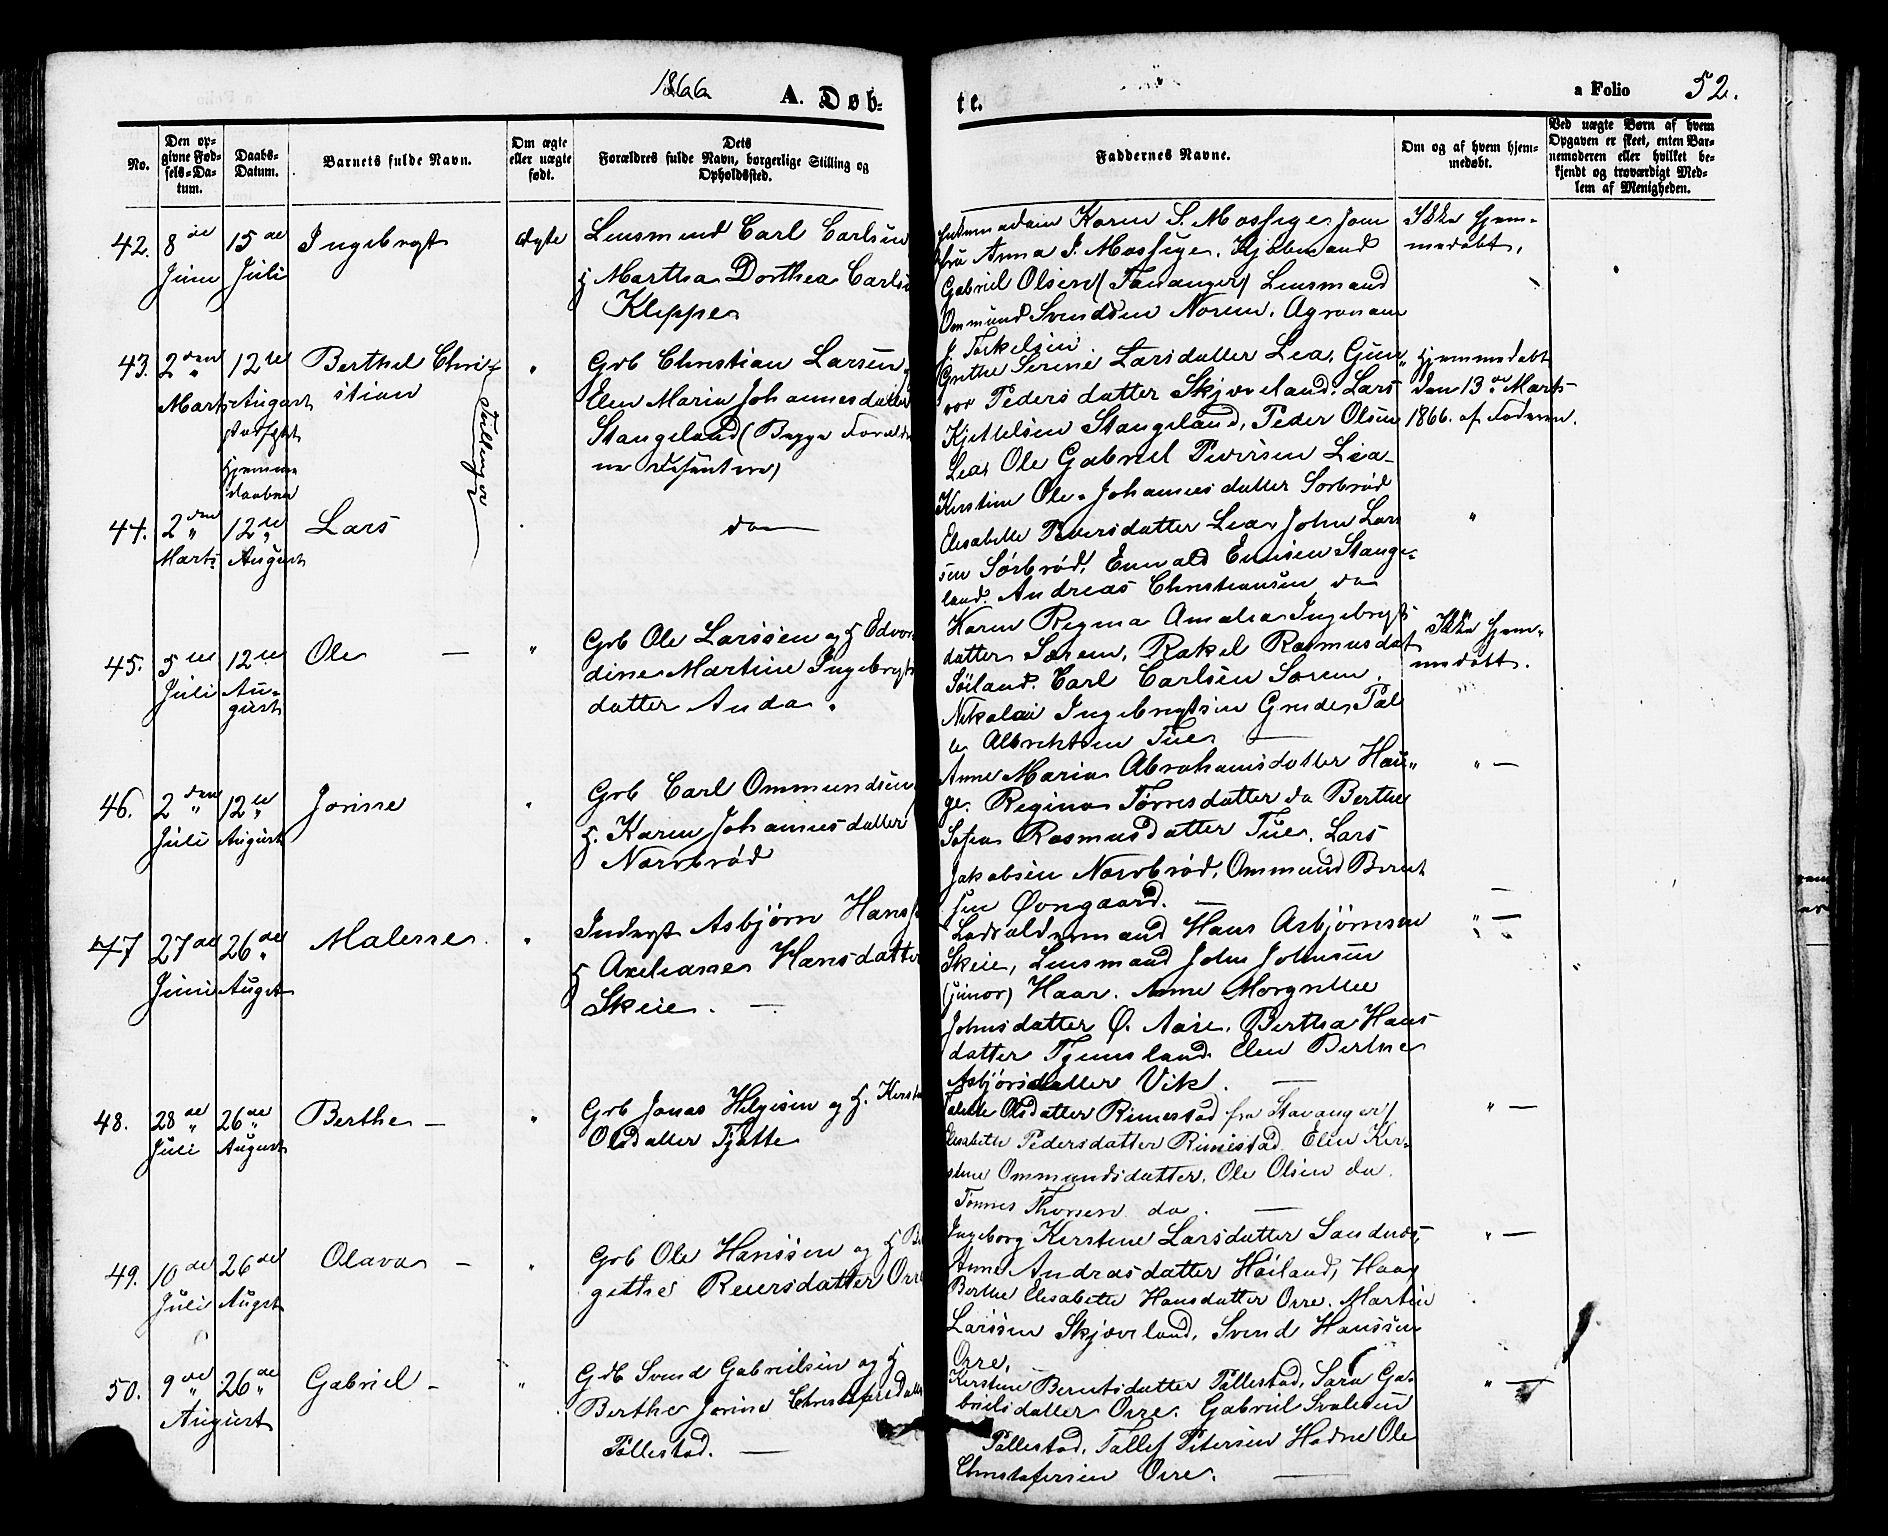 1866
A. Døb-
te.
a Folio 52.
No.
Den op-
givne Fød-
sels-Da-
tum.
Daabs-
Datum.
Barnets fulde Navn.
Om ægte
eller uægte
født.
Dets
Forældres fulde Navn, borgerlige Stilling og
Opholdssted.
Faddernes Navne.
Om og af hvem hjem-
medøbt.
Ved uægte Børn af hvem
Opgaven er skeet, enten Bar-
nemoderen eller hvilket be-
kjendt og troværdigt Med-
lem af Menigheden.
42. 8de 15de Ingebregt Ægte Lensmand Carl Carlsen
Juni Juli
H Martha Dorthea Carls
Kleppe
Karen S. Mossige Jom
fru Anna S. Mossige. Kjøbmand
Gabriel Olsen (Tananger) Lensmand
Ommund Svendsen Noren. Agronom
J. Torkelsen
Ikke hjem-
medøbt.
43. 2den 12te Berthel Chri- " Grb Christian Larsen
Marts August stian
Elen Maria Johannesdatter
Stangeland (Begge Foreldre
ne Dissentere)
hjemme
daaben
Tvillinger
Grethe Serine Larsdatter Lea, Gun-
vor Pedersdatter Skjæveland. Lars
Kjettelsen Stangeland, Peder Olsen
Lea, Ole Gabriel Peersen Lea
Hjemmedøbt
den 13de Marts
1866. af Faderen.
44. 2den 12te Lars " do
Marts August
Kirstine Ole Johannesdatter Sørbrød
Elisabette Peersdatter Lea, John Lar
sen Sørbrød, Enevald Enersen Stange-
land. Andreas Christiansen do
"
45. 5te 12te Ole — " Grb Ole Larssen og H Edvor
Juli Au-
gust
dine Martine Ingebregts
datter Anda.
Karen Regina Amalia Ingebregts
datter Sørem, Rakel Rasmusdat
Söiland. Carl Carlsen Sørem,
Nikolai Ingebregtsen Grude, Tal
le Albrektsen Tue —
Ikke hjem-
medøbt.
46. 2den 12te Jorine " Grb Carl Ommundsen
Juli August
H. Karen Johannesdatter
Norebrød
Anne Maria Abrahamsdatter Hau-
ge. Regina Tørresdatter do Berthe
Sofia Rasmusdatter Tue. Lars
Jakobsen Norebrød, Ommund Bernt
sen Øvregaard. —
" —
47 27de 26de Malene. " Inderst Asbjørn Hans
Juni Augst
H Axeliane Hansdatter
Skeie. —
Hans Asbjørnsen
Skeie, Lensmand John Johnsen
(junior) Haar. Anne Margrethe
Johnsdatter Ø. Aase. Bertha Hans
datter Tjemsland. Elen Bertine
Asbjørsdatter Vik. —
" —
48. 28de 26de Berthe — " Grb Jonas Helgesen og H. Kirst
Juli August
Olsdatter Tjøtte
Talette Olsdatter Rimestad fra Stavanger
Elisabette Pedersdatter Rimestad. Elen Kir-
stine Ommundsdatter, Ole Olsen do.
Tønnes Thorsen do. —
" —
49. 10de 26de Olava — " Grb Ole Hanssen og H Be
Juli Augst
gitthe Reiersdatter Orre
Ingeborg Kirstine Larsdatter Sandnes,
Anne Andrasdatter Høiland, Haa
Berthe Elisabette Hansdatter Orre. Martin
Larssen Skjæveland, Svend Hanssen
Orre.
" —
50. 9de 26de Gabriel — " Grb Svend Gabrielsen og H
August
Berthe Jorine Christofersdatt
Pollestad. —
Kirstine Berntsdatter Pollestad, Sara Ga-
brielsdatter Orre. Gabriel Svalesen
Pollestad, Tollef Petersen Hodne Ole
Christofersen Orre. —
" —